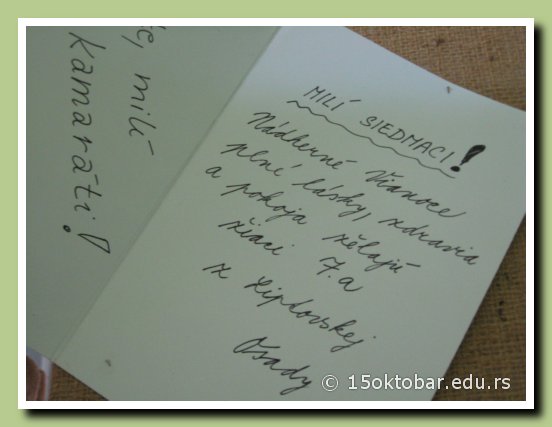 milí
kamaráti!
MILÍ SIEDMACI!
Nádherné Vianoce
plné lásky, zdravia
a pokoja želajú
žiaci 7.a
z Liptovskej
Osady
© 15oktobar.edu.rs